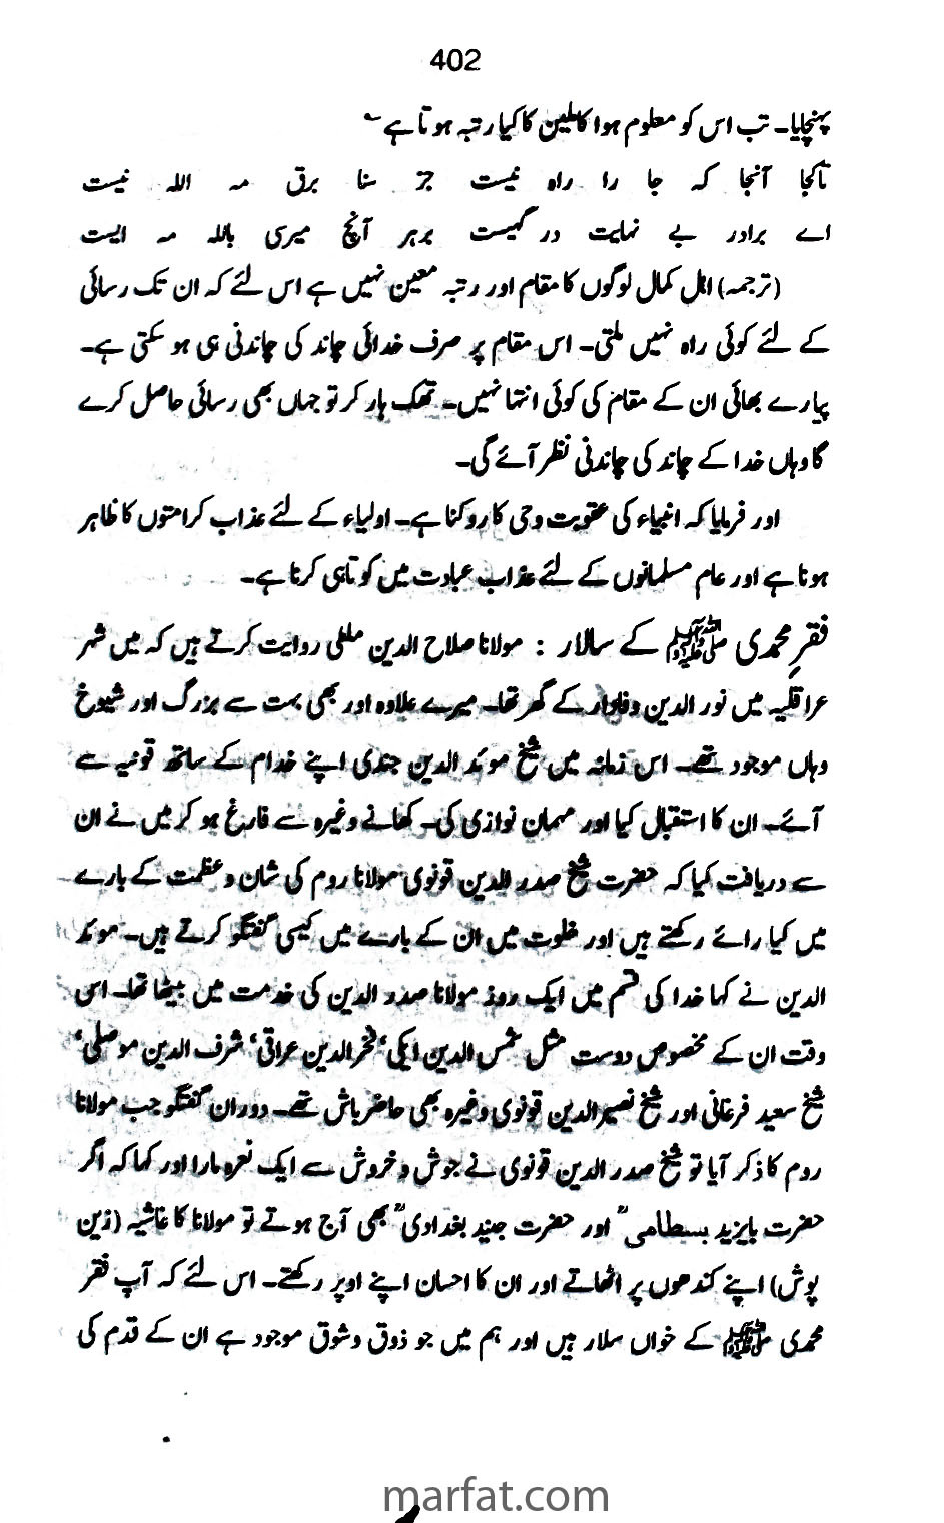 402
پہنچایا۔ تب اس کو معلوم ہوا کاملین کا کیا رتبہ ہوتا ہے ؎
تاکجا آنجا کہ جا را راہ نیست جز سنا برق مہ اللہ نیست
اے برادر بے نہایت در گہیست برہر آنچ میری باللہ مہ ایست
(ترجمہ) اہل کمال لوگوں کا مقام اور رتبہ معین نہیں ہے اس لئے کہ ان تک رسائی
کے لئے کوئی راہ نہیں ملتی۔ اس مقام پر صرف خدائی چاند کی چاندنی ہی ہو سکتی ہے۔
پیارے بھائی ان کے مقام کی کوئی انتہا نہیں۔ تھک ہار کر تو جہاں بھی رسائی حاصل کرے
گا وہاں خدا کے چاند کی چاندنی نظر آئے گی۔
اور فرمایا کہ انبیاء کی عقوبت وحی کا روکنا ہے۔ اولیاء کے لئے عذاب کرامتوں کا ظاہر
ہونا ہے اور عام مسلمانوں کے لئے عذاب عبادت میں کوتاہی کرنا ہے۔
فقرِ محمدی ﷺ کے سالار : مولانا صلاح الدین ملطی روایت کرتے ہیں کہ میں شہر
عراقلیہ میں نور الدین وفادار کے گھر تھا۔ میرے علاوہ اور بھی بہت سے بزرگ اور شیوخ
وہاں موجود تھے۔ اس زمانہ میں شیخ موئد الدین جندی اپنے خدام کے ساتھ قونیہ سے
آئے۔ ان کا استقبال کیا اور مہمان نوازی کی۔ کھانے وغیرہ سے فارغ ہو کر میں نے ان
سے دریافت کیا کہ حضرت شیخ صدر الدین قونوی مولانا روم کی شان و عظمت کے بارے
میں کیا رائے رکھتے ہیں اور خلوت میں ان کے بارے میں کیسی گفتگو کرتے ہیں۔ موئد
الدین نے کہا خدا کی قسم میں ایک روز مولانا صدر الدین کی خدمت میں بیٹھا تھا۔ اس
وقت ان کے مخصوص دوست مثل شمس الدین ایکی‘ فخر الدین عراقی‘ شرف الدین موصلی‘
شیخ سعید فرغانی اور شیخ نصیر الدین قونوی وغیرہ بھی حاضر باش تھے۔ دوران گفتگو جب مولانا
روم کا ذکر آیا تو شیخ صدر الدین قونوی نے جوش و خروش سے ایک نعرہ مارا اور کہا کہ اگر
حضرت بایزید بسطامیؒ اور حضرت جنید بغدادیؒ بھی آج ہوتے تو مولانا کا غاشیہ (زین
پوش) اپنے کندھوں پر اٹھاتے اور ان کا احسان اپنے اوپر رکھتے۔ اس لئے کہ آپ فقر
محمدی ﷺ کے خواں سالار ہیں اور ہم میں جو ذوق و شوق موجود ہے ان کے قدم کی
marfat.com